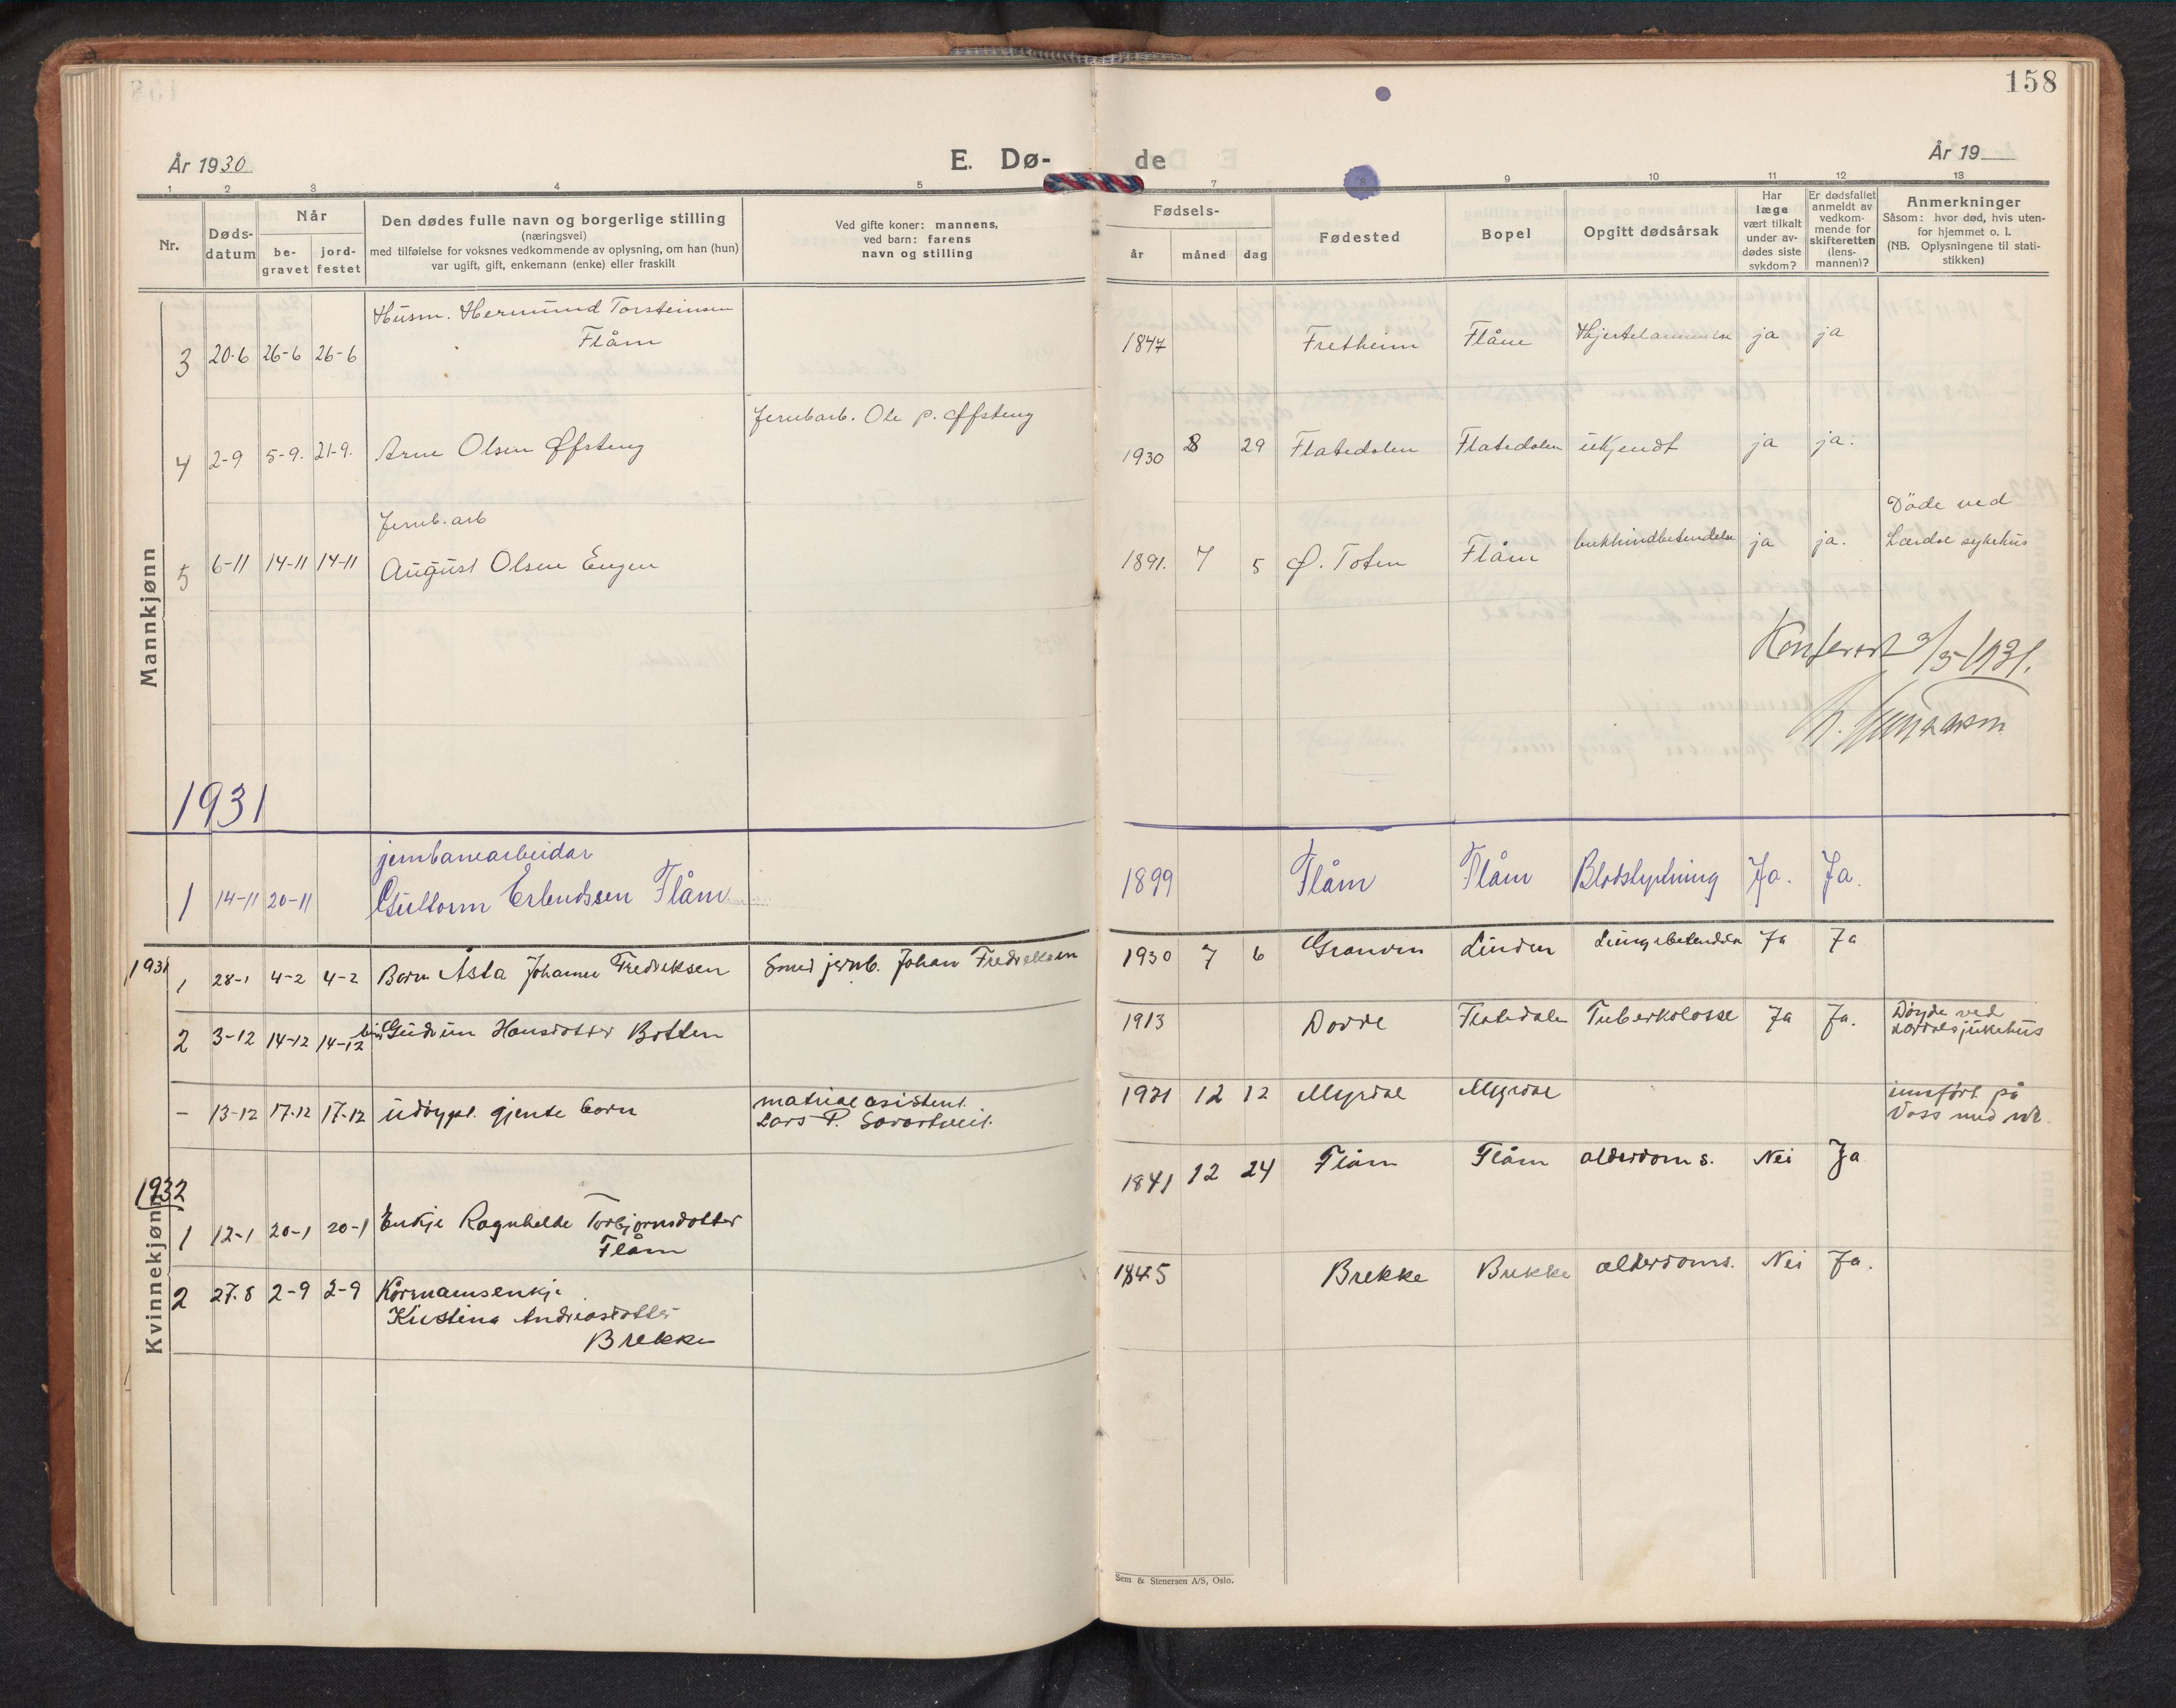 158
År 1930
E. Dø-
de
År 19
1 2 3 4 5
7 8 9 10 11 12 13
Nr.
Døds-
datum
Når
be-
gravet
jord-
festet
Den dødes fulle navn og borgerlige stilling
(næringsvei)
med tilføielse for voksnes vedkommende av oplysning, om han (hun)
var ugift, gift, enkemann (enke) eller fraskilt
Ved gifte koner: mannens,
ved barn: farens
navn og stilling
Fødsels-
år måned dag
Fødested
Bopel
Opgitt dødsårsak
Har
læge
vært tilkalt
under av-
dødes siste
sykdom?
Er dødsfallet
anmeldt av
vedkom-
mende for
skifteretten
(lens-
mannen)?
Anmerkninger
Såsom: hvor død, hvis uten-
for hjemmet o. l.
(NB. Oplysningene til stati-
stikken)
Mannkjønn
Husm. Hermund Torsteinsen
Flåm
3 20-6 26-6 26-6
1847 Fretheim Flåm ja ja
Jernbarb. Ole P. Øfsteng
4 2-9 5-9. 21-9. Arne Olsen Øfsteng
1930 8 29 Flatedalen Flatedalen ukjendt ja ja.
Jernb. arb
5 6-11 14-11 14-11 August Olsen Engen
1891. 7 5 Ø. Toten Flåm bukhindbetendelse ja ja.
Döde ved
Lærdal sykehus
Konferert 3/5-1931.
1931
jernbanearbeidar
1 14-11 20-11 Guttorm Erlendssen Flåm
1899 Flåm Flåm Blodstyrtning Ja. Ja.
1931 1 28-1 4-2 4-2 Born Åsta Johanne Fredriksen Smed jernb. Johan Fredriksen
1930 7 6 Granvin Linden Lungebetendelse Ja Ja
2 3-12 14-12 14-12 Gudrun Hansdotter Botten
1913 Dovre Flatedalen Tuberkolosse Ja Ja.
Döyde ved
Lærdal sjukehus
- 13-12 17-12 17-12 udöypt. gjente born
material asistent.
Lars P.
1931 12 12 Myrdal Myrdal
innfört på
Voss med nr.
1932
Kvinnekjønn
1 12-1 20-1 20-1 Enkje Ragnhilde Torbjørnsdotter
Flåm
1841 12 24 Flåm Flåm alderdoms. Nei Ja
2 27.8 2-9 2-9 Kårmannsenkje
Kristina Andreasdotter
Brekke
1845 Brekke Brekke alderdoms. Nei Ja.
Sem & Stenersen A/S, Oslo.